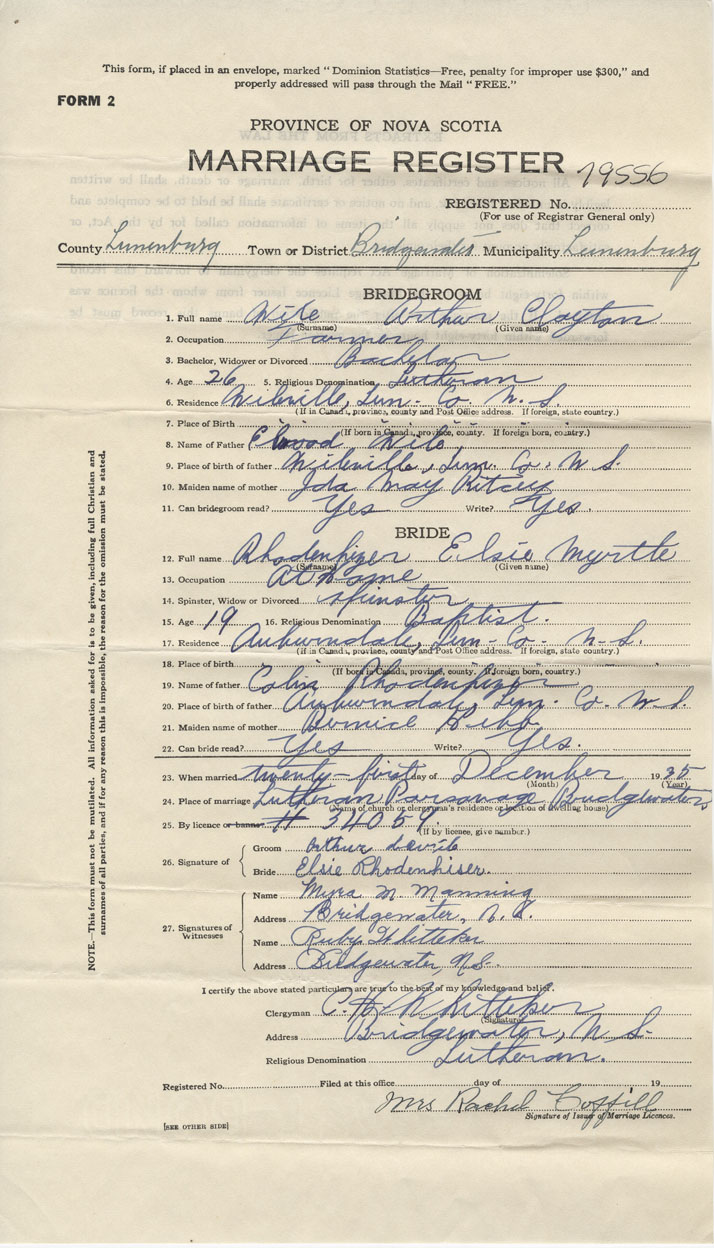 This form, if placed in an envelope, marked "Dominion Statistics—Free, penalty for improper use $300," and
properly addressed will pass through the Mail "FREE."
FORM 2
PROVINCE OF NOVA SCOTIA
MARRIAGE REGISTER 19556
REGISTERED No.
(For use of Registrar General only)
County Lunenburg Town or District Bridgewater Municipality Lunenburg
BRIDEGROOM
1. Full name Wile Arthur Clayton
(Surname) (Given name)
2. Occupation Farmer
3. Bachelor, Widower or Divorced Bachelor
4. Age 26 5. Religious Denomination Lutheran
6. Residence Wileville, Lun. Co. N. S.
(If in Canada, province, county and Post Office address. If foreign, state country.)
7. Place of Birth " " " "
(If born in Canada, province, county. If foreign born, country.)
8. Name of Father Elwood Wile
9. Place of birth of father Wileville, Lun. Co. N S.
10. Maiden name of mother Ida May Ritcey
11. Can bridegroom read? Yes Write? Yes.
BRIDE
12. Full name Rhodenhizer Elsie Myrtle
(Surname) (Given name)
13. Occupation At home
14. Spinster, Widow or Divorced Spinster
15. Age 19 16. Religious Denomination Baptist.
17. Residence Auburndale, Lun. Co. N. S.
(If in Canada, province, county and Post Office address. If foreign, state country.)
18. Place of birth " " " "
(If born in Canada, province, county. If foreign born, country.)
19. Name of father Colin Rhodenhizer
20. Place of birth of father Auburndale, Lun. Co. N. S.
21. Maiden name of mother Bernice
22. Can bride read? Yes Write? Yes.
23. When married twenty-first day of December 1935
(Month) (Year)
24. Place of marriage Lutheran Parsonage Bridgewater
(Name of church or clergyman's residence or location of dwelling house)
25. By licence or banns # 34059
(If by licence, give number.)
26. Signature of
Groom Arthur
Bride Elsie Rhodenhiser.
27. Signatures of Witnesses
Name Myra M. Manning
Address Bridgewater, N. S.
Name Ruby Whitteker
Address Bridgewater, N.S.
I certify the above stated particulars are true to the best of my knowledge and belief.
Clergyman C. H. Whitteker
(Signature)
Address Bridgewater, N S.
Religious Denomination Lutheran.
Registered No. Filed at this office day of 19
Mrs Rachel Coffill
Signature of Issuer of Marriage Licences.
[SEE OTHER SIDE]
NOTE.—This form must not be mutilated. All information asked for is to be given, including full Christian and
surnames of all parties, and if for any reason this is impossible, the reason for the omission must be stated.